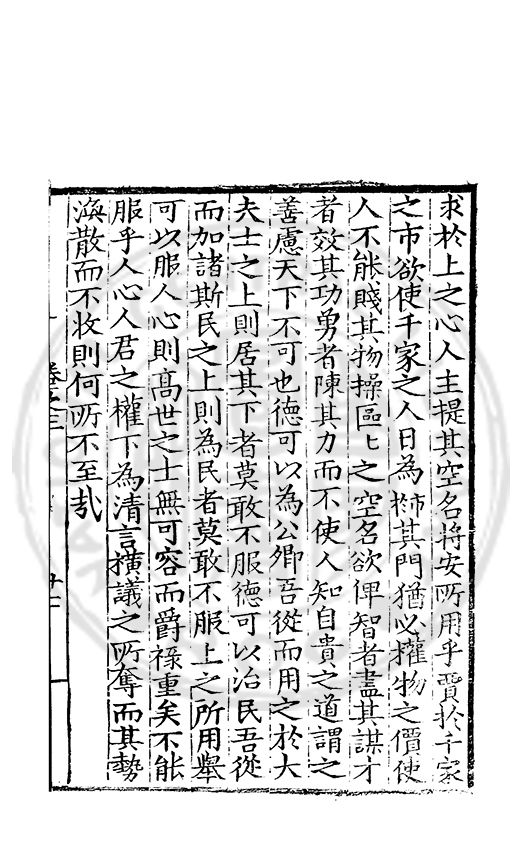 求於上之心人主提其空名將安所用乎賈於千家
之市欲使千家之人日為掃其門猶必擁物之價使
人不能賤其物操區匕之空名欲俾智者盡其謀才
者效其功勇者陳其力而不使人知自貴之道謂之
善慮天下不可也德可以為公卿吾從而用之於大
夫士之上則居其下者莫敢不服德可以治民吾從
而加諸斯民之上則為民者莫敢不服上之所用舉
可以服人心則高世之士無可容而爵祿重矣不能
服乎人心人君之權下為清言橫議之所奪而其勢
渙散而不收則何所不至㢤